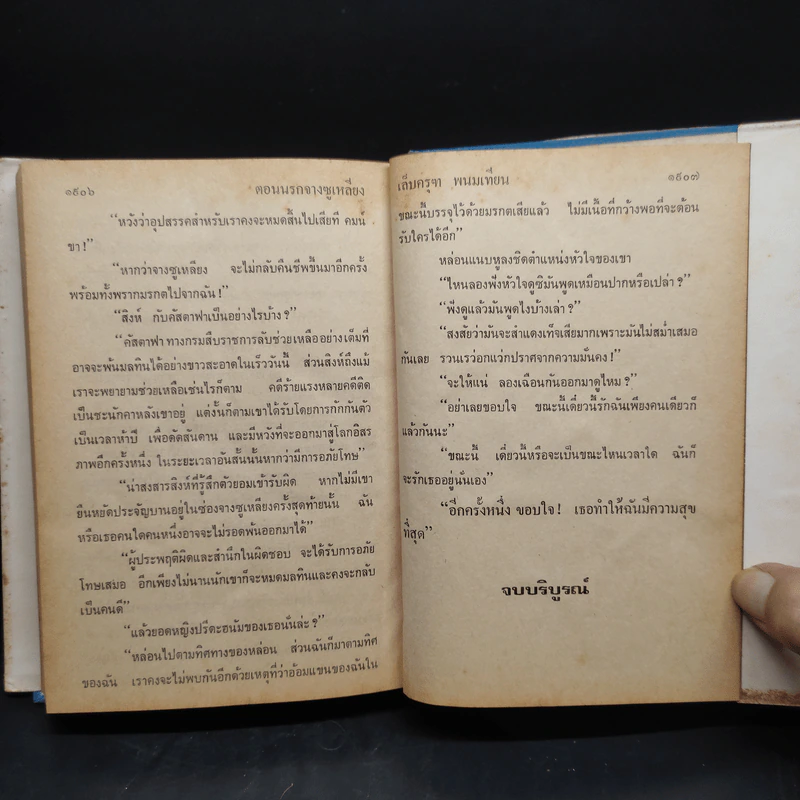 ๑๙๐๖ ตอนนรกจางซูเหลียง
“หวังว่าอุปสรรคสำหรับเราคงจะหมดสิ้นไปเสียที คมน์
ขา!”
“หากว่าจางซูเหลียง จะไม่กลับคืนชีพขึ้นมาอีกครั้ง
พร้อมทั้งพรากมรกตไปจากฉัน!”
“สิงห์ กับคัสตาฟาเป็นอย่างไรบ้าง?”
“คัสตาฟา ทางกรมสืบราชการลับช่วยเหลืออย่างเต็มที่
อาจจะพ้นมลทินได้อย่างขาวสะอาดในเร็ววันนี้ ส่วนสิงห์ถึงแม้
เราจะพยายามช่วยเหลือเช่นไรก็ตาม คดีร้ายแรงหลายคดีติด
เป็นชะนักคาหลังเขาอยู่ แต่งั้นก็ตามเขาได้รับโดยการกักกันตัว
เป็นเวลาห้าปี เพื่อดัดสันดาน และมีหวังที่จะออกมาสู่โลกอิสร
ภาพอีกครั้งหนึ่ง ในระยะเวลาอันสั้นนั้นหากว่ามีการอภัยโทษ”
“น่าสงสารสิงห์ที่รู้สึกตัวยอมเข้ารับผิด หากไม่มีเขา
ยืนหยัดประจัญบานอยู่ในซ่องจางซูเหลียงครั้งสุดท้ายนั้น ฉัน
หรือเธอคนใดคนหนึ่งอาจจะไม่รอดพ้นออกมาได้”
“ผู้ประพฤติผิดและสำนึกในผิดชอบ จะได้รับการอภัย
โทษเสมอ อีกเพียงไม่นานนักเขาก็จะหมดมลทินและคงจะกลับ
เป็นคนดี”
“แล้วยอดหญิงปรีดะฮนัมของเธอนั่นล่ะ?”
“หล่อนไปตามทิศทางของหล่อน ส่วนฉันก็มาตามทิศ
ของฉัน เราคงจะไม่พบกันอีกด้วยเหตุที่ว่าอ้อมแขนของฉันใน
เล็บครุฑ พนมเทียน ๑๙๐๗
ขณะนี้บรรจุไว้ด้วยมรกตเสียแล้ว ไม่มีเนื้อที่กว้างพอที่จะต้อน
รับใครได้อีก”
หล่อนแนบหูลงชิดตำแหน่งหัวใจของเขา
“ไหนลองฟังหัวใจดูซิมันพูดเหมือนปากหรือเปล่า?”
“ฟังดูแล้วมันพูดไงบ้างเล่า?”
“สงสัยว่ามันจะสำแดงเท็จเสียมากเพราะมันไม่สม่ำเสมอ
กันเลย รวนเรว่อกแวกปราศจากความมั่นคง!”
“จะให้แน่ ลองเฉือนกันออกมาดูไหม?”
“อย่าเลยขอบใจ ขณะนี้เดี๋ยวนี้รักฉันเพียงคนเดียวก็
แล้วกันนะ”
“ขณะนี้ เดี๋ยวนี้หรือจะเป็นขณะไหนเวลาใด ฉันก็
จะรักเธออยู่นั่นเอง”
“อีกครั้งหนึ่ง ขอบใจ! เธอทำให้ฉันมีความสุข
ที่สุด”
จบบริบูรณ์